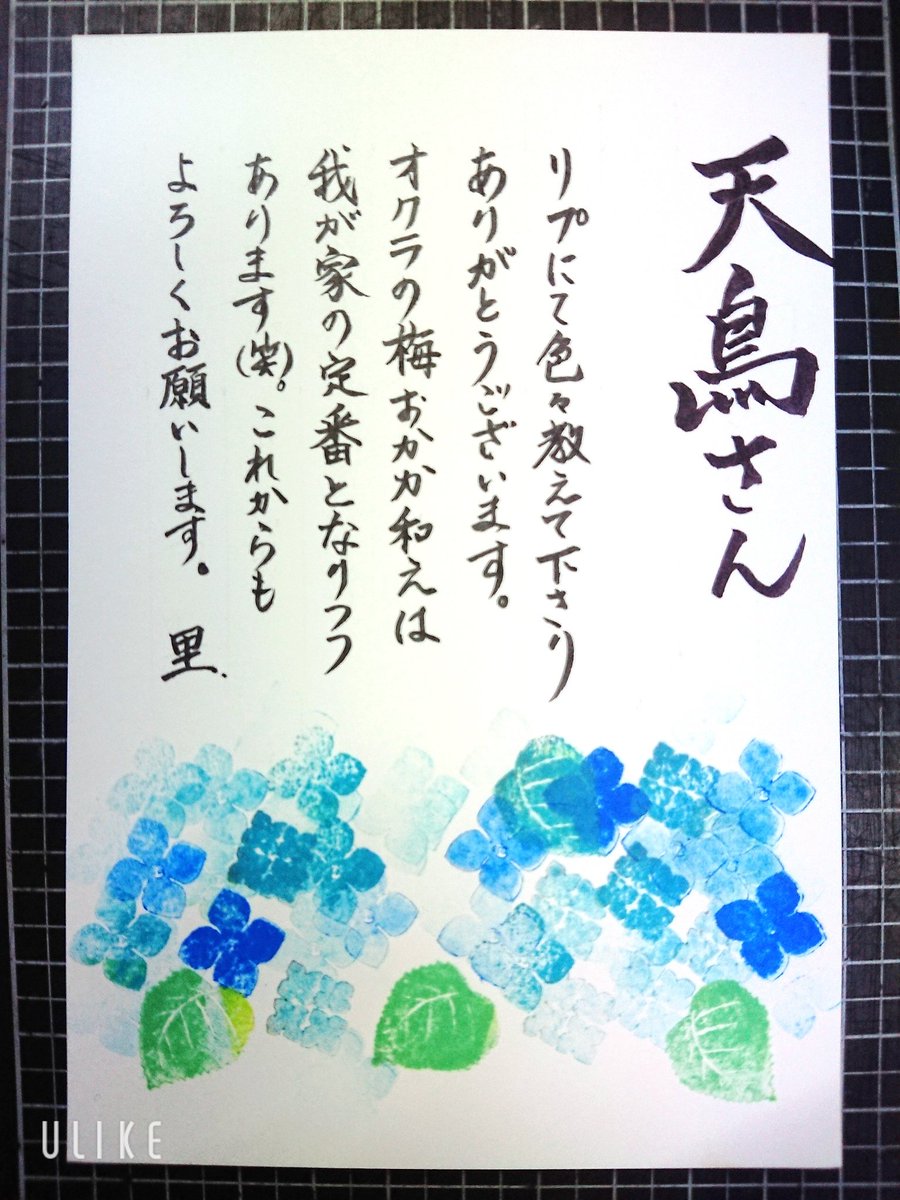 天鳥さん
リプにて色々教えて下さり
ありがとうございます。
オクラの梅おかか和えは
我が家の定番となりつつ
あります(笑)。これからも
よろしくお願いします。 里
ULIKE